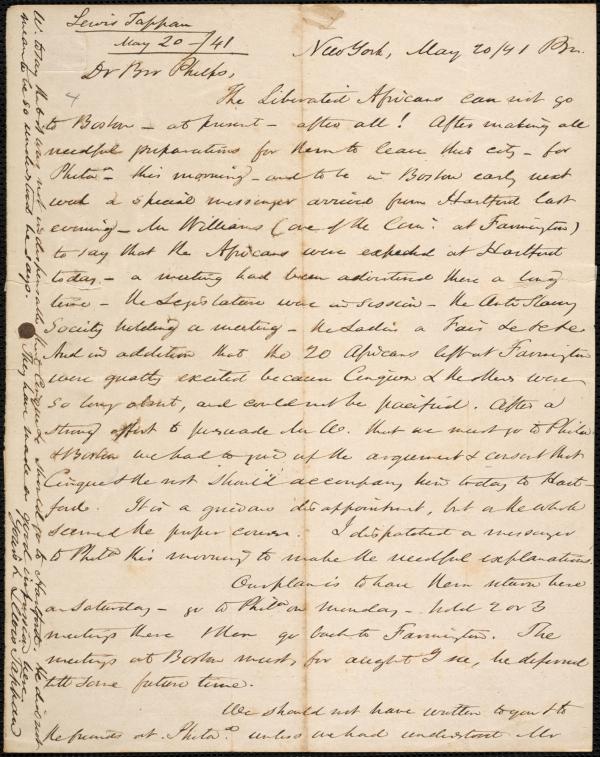 Lewis Tappan
May 20-/41
New York, May 20/41
Dr Bro Phelps,
The Liberated Africans can not go
to Boston - at present - after all! After making all
needful preparations for them to leave this city - for
Phila - this morning - and to be in Boston early next
week a special messenger arrived from Hartford last
evening - Mr Williams (one of the Com. at Farmington)
to say that the Africans were expected at Hartford
today - a meeting had been advertised there a long
time - the Legislature were in session - the Anti Slavery
Society holding a meeting - the Ladies a Fair &c &c &c
And in addition that the 20 Africans left at Farmington
were greatly excited because Cingues & the others were
so long absent, and could not be pacified. After a
strong effort to persuade Mr W. that we must go to Phila
& Boston we had to give up the argument & consent that
Cinque & the rest should accompany him today to Hart-
ford. It is a grievous disappointment, but on the whole
seemed the proper course. I dispatched a messenger
to Phila this morning to make the needful explanations.
Our plan is to have them return here
on Saturday - go to Phila on Monday - hold 2 or 3
meetings there & then go back to Farmington. The
meetings at Boston must, for aught I see, be deferred
till some future time.
We should not have written to you & to
the friends at Phila. unless we had understood Mr
W. today that it was not indispensable that Cinque & should go to Hartford. He did not
mean to be so understood he says. They have made a good impression here.
Lewis Tappan